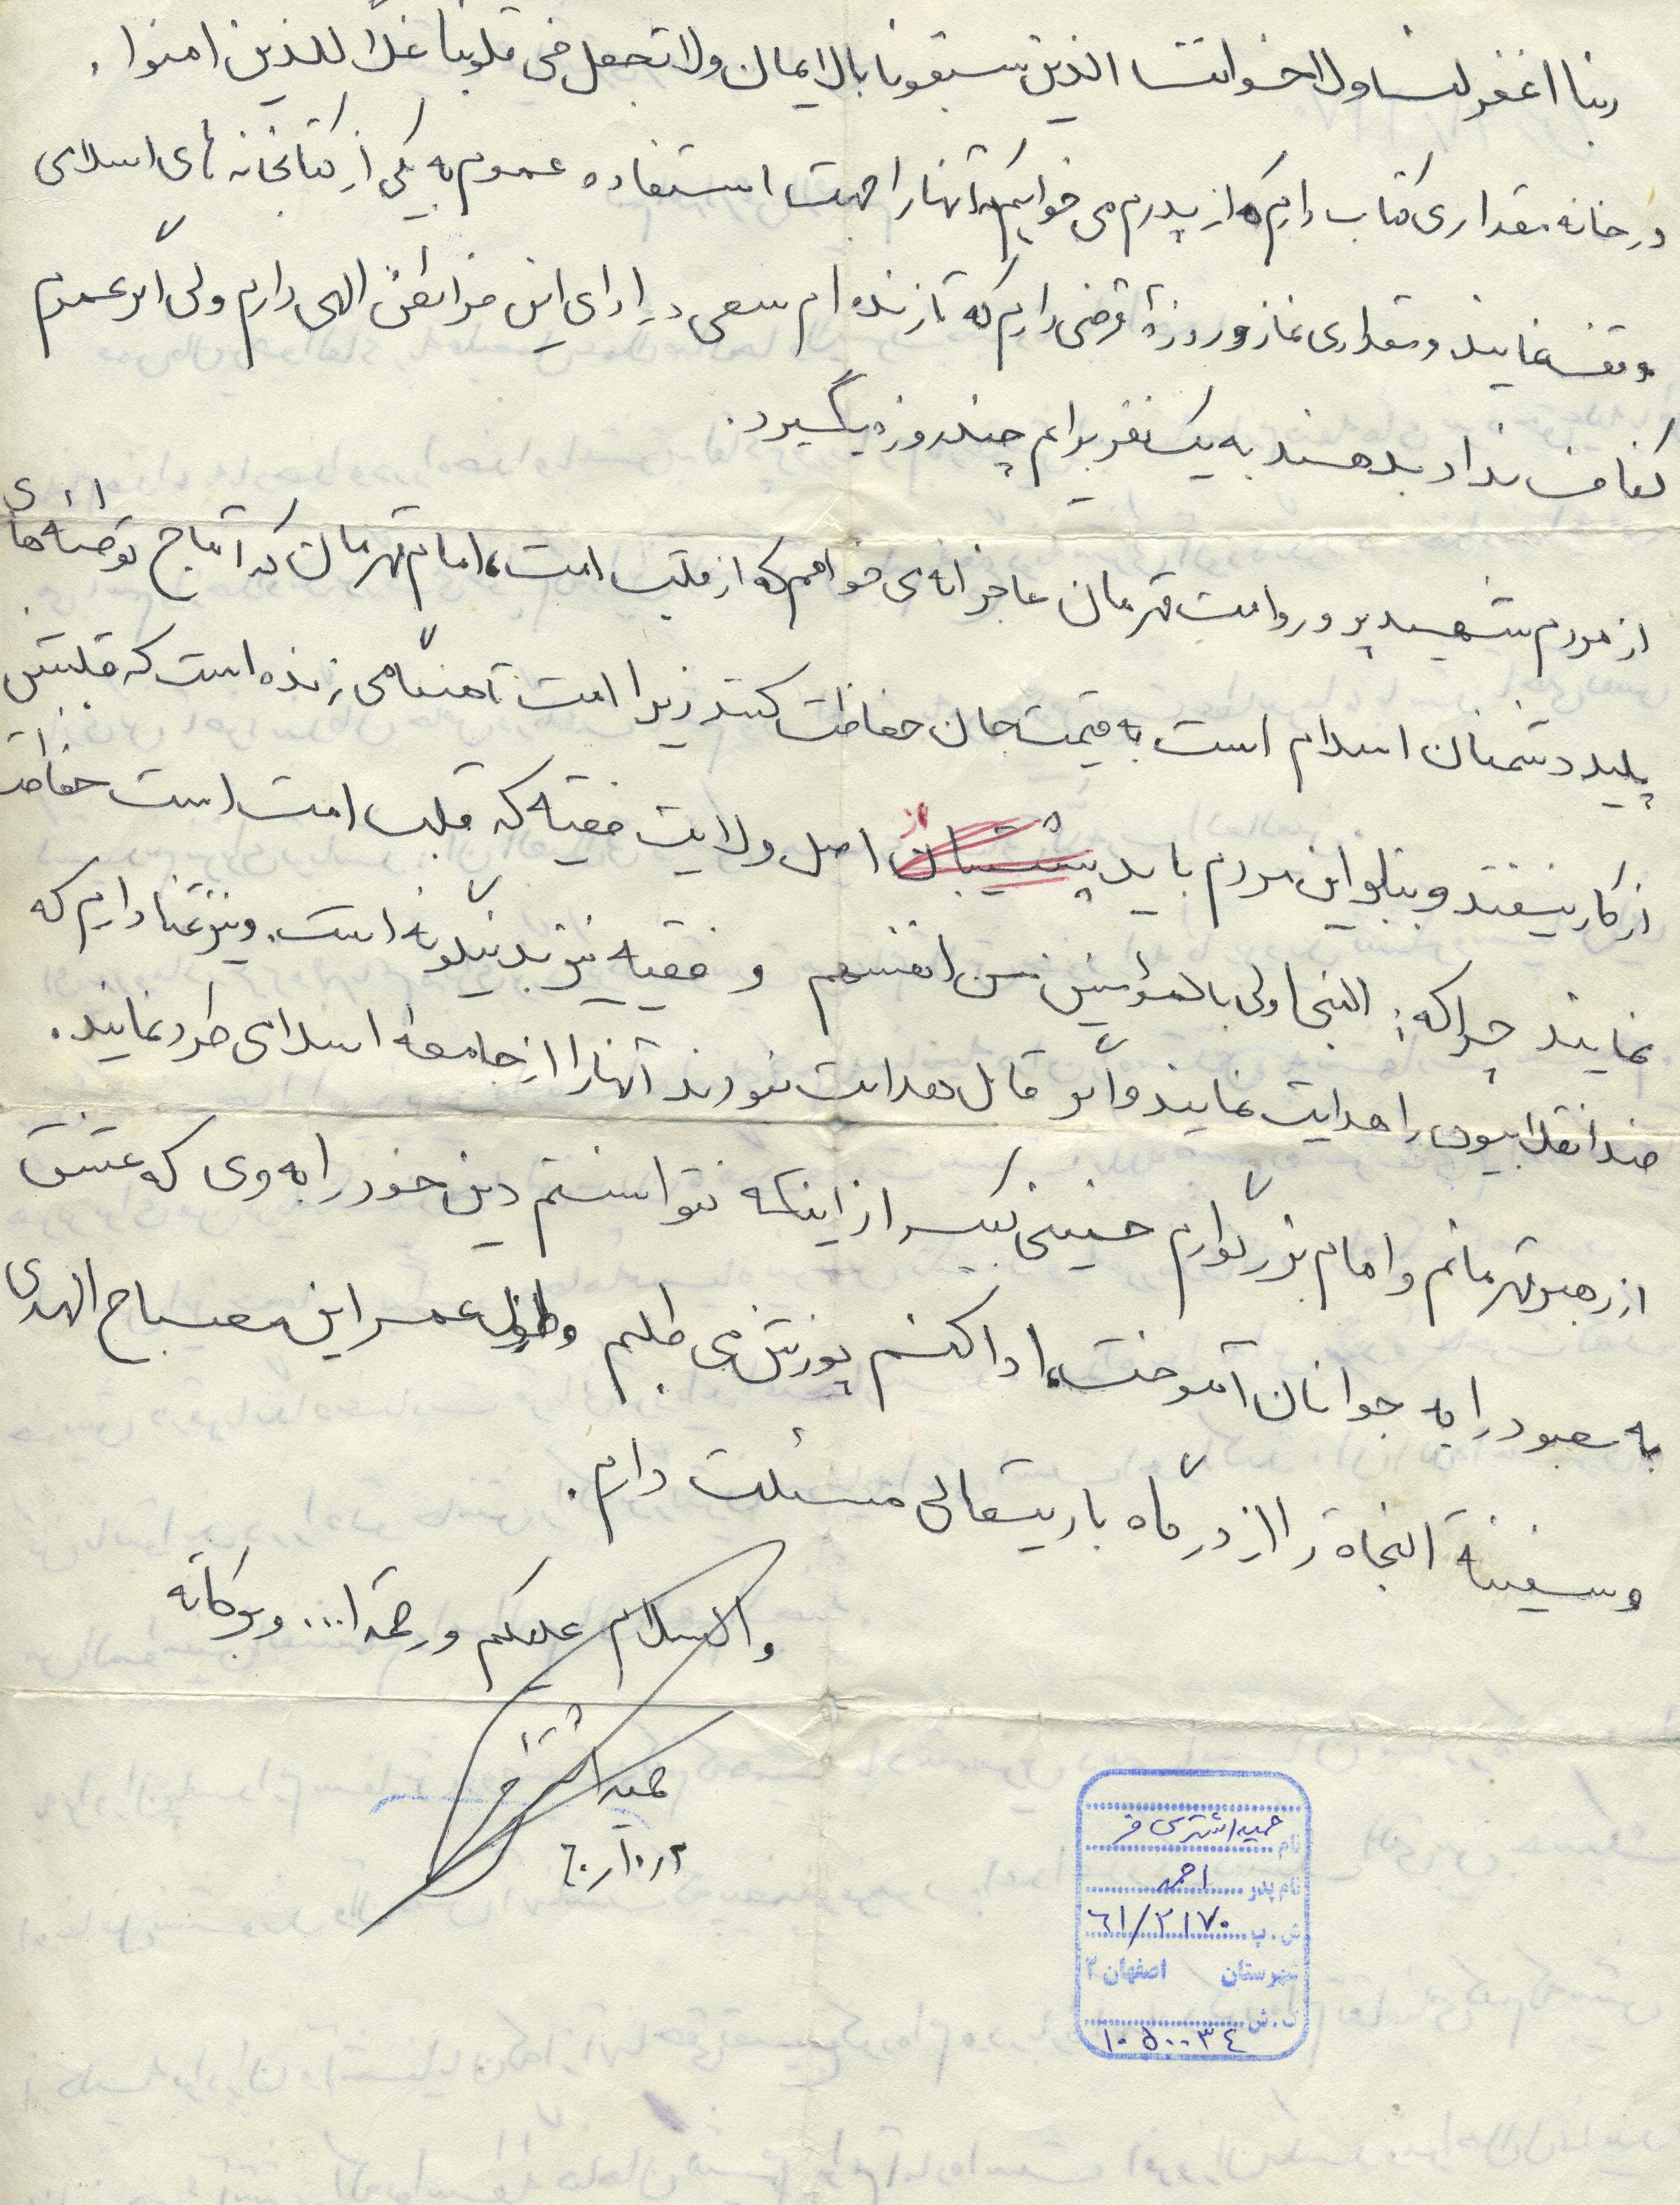 ربنا اغفرلنا ولاخواننا الذین سبقونا بالایمان ولا تجعل فی قلوبنا غلاً للذین امنوا .
در خانه مقداری کتاب دارم که از پدرم می خواهم آنها را جهت استفاده عموم به یکی از کتابخانه های اسلامی
وقف نمایند و مقداری نماز و روزه قرضی دارم که تا زنده ام سعی در ادای این فرائض الهی دارم ولی اگر عمرم
کفاف نداد بدهند به یک نفر برایم چند روزه بگیرد .
از مردم شهیدپرور و امت قهرمان عاجزانه می خواهم که از قلب امت، امام قهرمان که آماج توطئه های
پلید دشمنان اسلام است به قیمت جان حفاظت کنند زیرا امت تا هنگامی زنده است که قلبش
از کار نیفتد و بنابر این مردم باید پشتیبان از اصل ولایت فقیه که قلب امت است حفاظت
نمایند چرا که : النبی اولی بالمؤمنین من انفسهم و فقیه نیز بدینگونه است . و نیز تمنا دارم که
ضد انقلابیون را هدایت نمایند و اگر قابل هدایت نبودند آنها را از جامعه اسلامی طرد نمایند .
از رهبر قهرمانم و امام بزرگوارم خمینی کبیر از اینکه نتوانستم دین خود را به وی که عشق
به معبود را به جوانان آموخت، ادا کنم پوزش می طلبم و طول عمر این مصباح الهدی
و سفینة النجاة را از درگاه باریتعالی مسئلت دارم .
والسلام علیکم و رحمة ا... و برکاته
حمید اشتری فر
۶۰/۱۰/۲
نام حمید اشتری فر
نام پدر احمد
ش . پ ۶۱/۲۱۷۰
شهرستان اصفهان ۲
ک . ش ۱۰۵۰۰۳۴